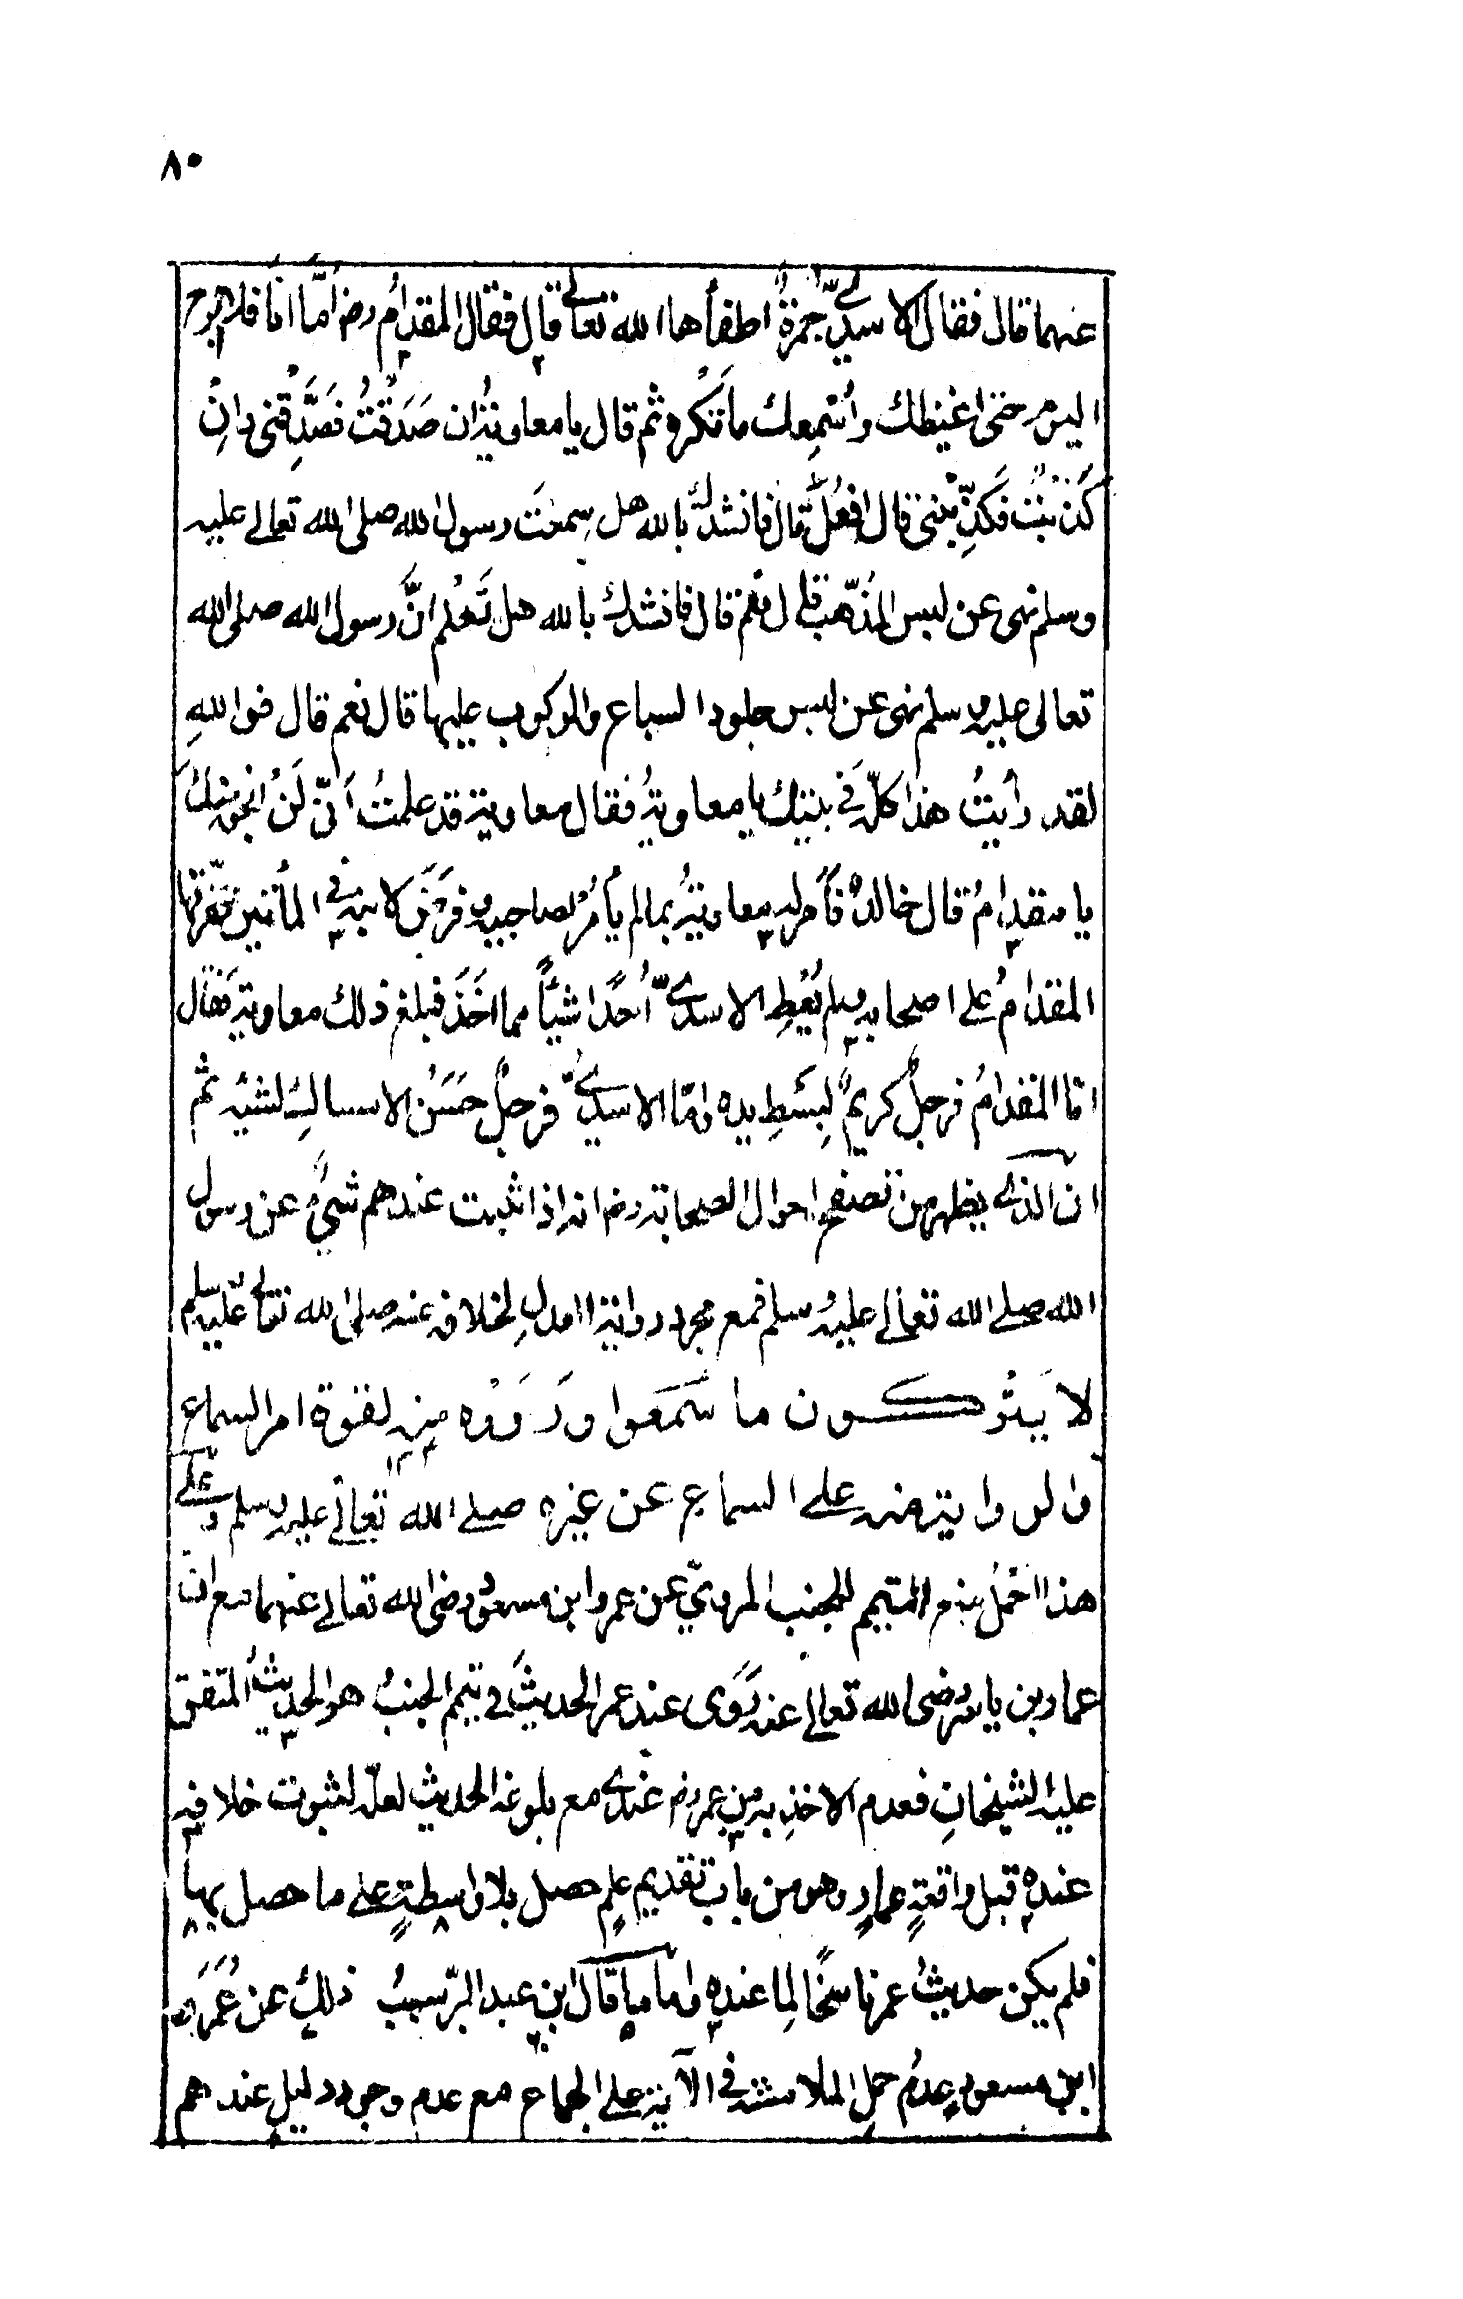 ٨٠
عنهما قال فقال الاسديّ جمرةٌ اطفأها الله تعالى قال فقال المقدامُ رض أمّا انا فلا ابرح
اليوم حتى اغيظك وأسْمِعك ما تَكْره ثم قال يا معاويةُ ان صَدَقْتُ فصَدِّقْنى وانْ
كَذَبْتُ فكَذِّبْنى قال افعلُ قال فانشدك بالله هل سمعتَ رسول الله صلى الله تعالى عليه
وسلم نهى عن لبس الذهب قال نعم قال فانشدك بالله هل تَعْلم انَّ رسول الله صلى الله
تعالى عليه وسلم نهى عن لبس جلود السباع والركوب عليها قال نعم قال فوالله
لقد رأيتُ هذا كلَّه فى بيتك يا معاويةُ فقال معاوية قد علمتُ أنّى لَنْ انجو منك
يا مقدامُ قال خالدٌ فأمر له معاويةُ بما لم يأمُر لصاحبيه وفرَضَ لابنه فى المأتين ففرّقها
المقدامُ على اصحابه ولم يُعْطِ الاسديُّ أحدًا شيئًا مما اخَذَ فبلغ ذلك معاوية فقال
امّا المقدامُ فرجلٌ كريمٌ بسَط يده وامّا الاسديُّ فرجلٌ حَسَنُ الامساك لشيئه ثم
ان الذى يظهر من تصفح احوال الصحابة رض انه اذا ثبت عندهم شيءٌ عن رسول
الله صلى الله تعالى عليه وسلم فمع مجرد رواية لخلافه عنه صلى الله تعالى عليه وسلم
لا يَتْركون ما سَمَعوا ورَوَوْه منه لقوة امر السماع
على السماع عن غيره صلى الله تعالى عليه وسلم وعلى
هذا التيمم للجنب المرويّ عن عمر وابن مسعود رضى الله تعالى عنهما مع ان
عمار بن ياسر رضى الله تعالى عنه رَوَى عند عمر الحديثَ فى تيمم الجنب هو الحديثُ المتفق
عليه الشيخان فعدم الاخذ به من عمر رض عندى مع بلوغه الحديث لعلّه لثبوت خلافه
عنده قبل واقعةِ عمارٍ وهو من باب تقديم علمٍ حصل بلا واسطةٍ على ما حصل بها
فلم يكن حديثُ عمر ناسخًا لما عنده واما ما قال ابن عبد البرّ سببُ ذلك عن عُمَرَ و
ابن مسعودٍ عدمُ حمل الملامسة فى الآية على الجماع مع عدم وجود دليل عندهم